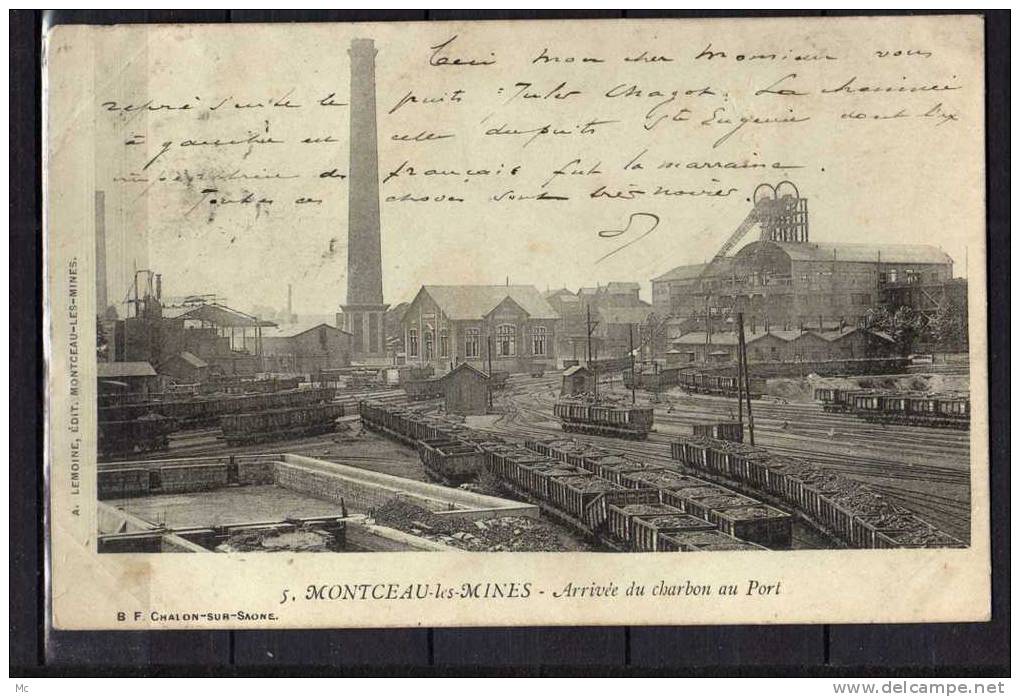 Ceci mon cher monsieur vous
représente le puits : Jules Chagot. La cheminée
à gauche est celle du puits Ste Eugénie dont l'ex
impératrice des français fut la marraine.
Toutes ces choses sont très noires.
A. LEMOINE, ÉDIT. MONTCEAU-LES-MINES.
5. MONTCEAU-les-MINES - Arrivée du charbon au Port
B F. CHALON-SUR-SAONE.
Mc
www.delcampe.net